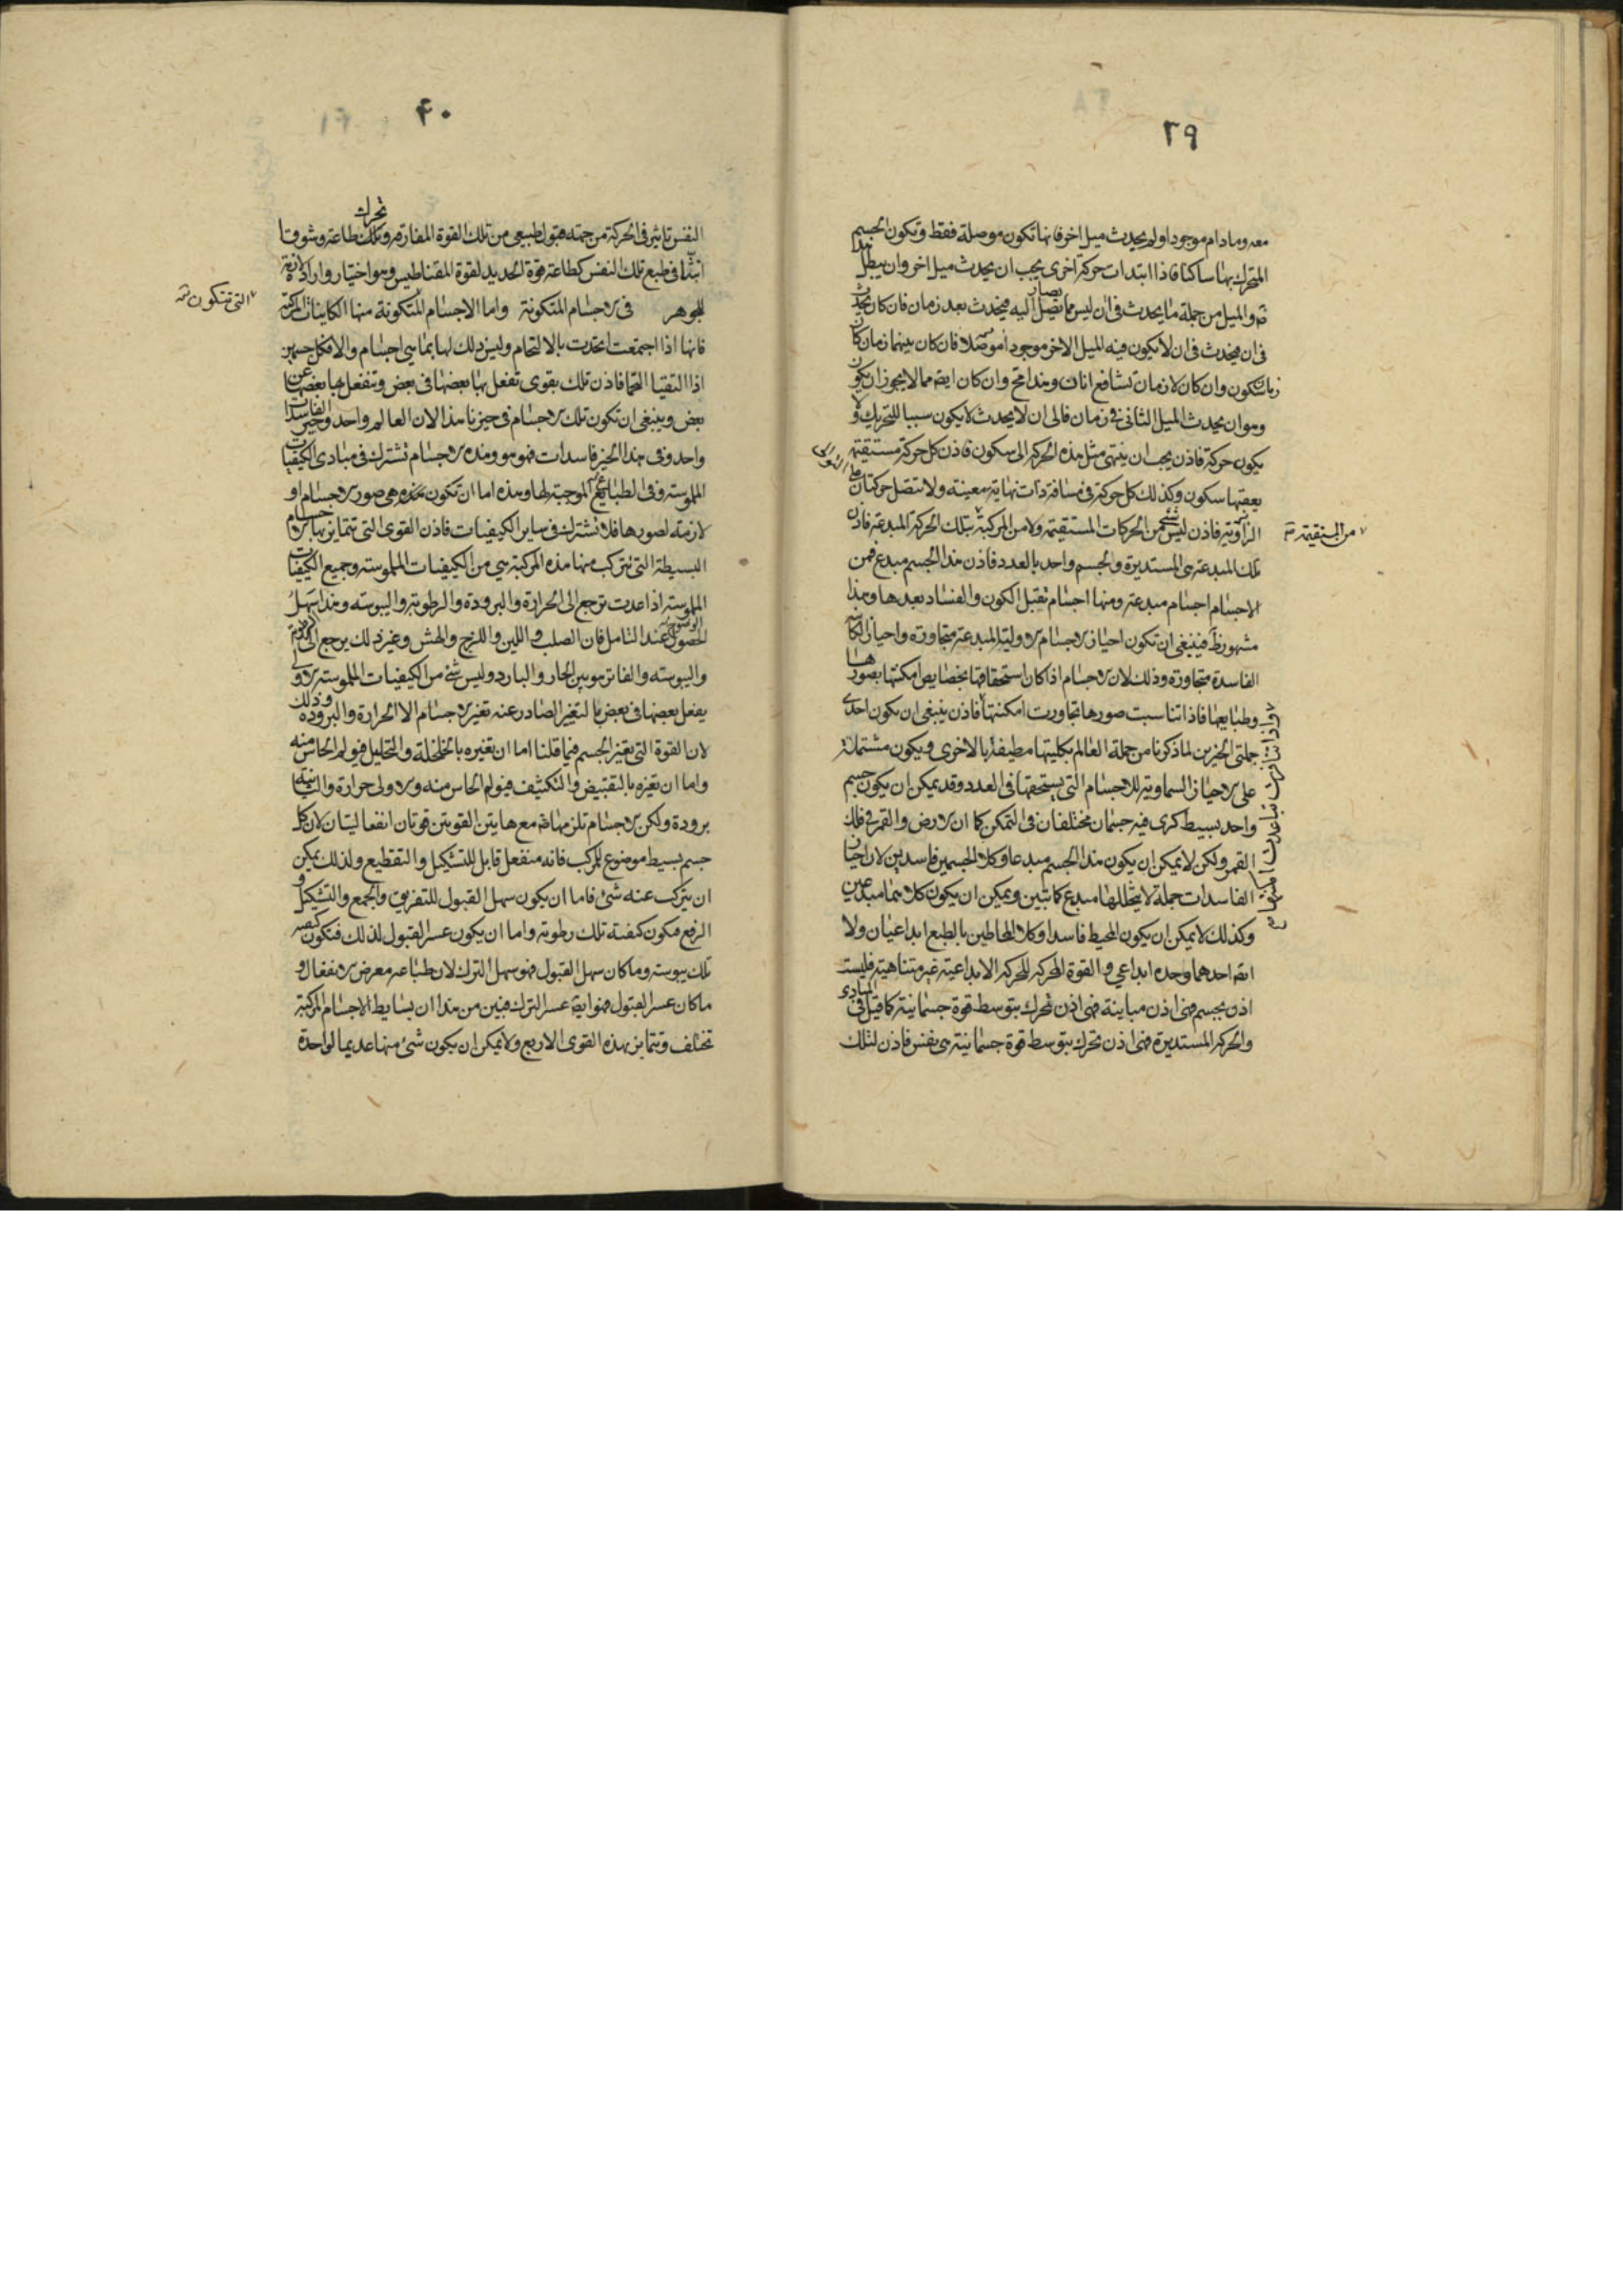 ٣٩
معه ومادام موجودا ولم يحدث ميل اخر فانها تكون موصلة فقط وتكون الجسم
المتحرك بها ساكنا فاذا ابتدات حركة اخرى يجب ان يحدث ميل اخر وان يبطل
والميل من جملة ما يحدث فى ان ليس مما يصار اليه فيحدث بعد زمان فان كان يحدث
فى ان فيحدث فى ان لا يكون فيه الميل الاخر موجودا موصلا فان كان بينهما زمان كان
زمان سكون وان كان لا زمان تشافع انات وهذا مح وان كان ايضا مما لا يجوز ان يكون
وهو ان يحدث الميل الثانى فى زمان فالى ان لا يحدث لا يكون سببا للتحريك ولا
يكون حركة فاذن يجب ان ينتهى مثل هذه الحركة الى سكون فاذن كل حركة مستقيمة
يعقبها سكون وكذلك كل حركة فى مسافة ذات نهاية معينة ولا تتصل حركتان على التوالى
الزاوية فاذن ليس شئ من الحركات المستقيمة ولا من المركبة بتلك الحركة المبدعة فاذن
من المستقيمة
تلك المبدعة هى المستديرة والجسم واحد بالعدد فاذن هذا الجسم مبدع فمن
الاجسام اجسام مبدعة ومنها اجسام تقبل الكون والفساد بعدها وهذا
مشهور ظ فينبغى ان تكون احياز الاجسام الاولية المبدعة متجاورة واحياز الكائنة
الفاسدة متجاورة وذلك لان الاجسام اذا كان استحقاقها بخصايص امكنتها بصورها
وطبايعها فاذا تناسبت صورها تجاورت امكنتها فاذن ينبغى ان يكون احدى
واذا تنافرت تباعدت امكنتها
جملتى الحيزين لما ذكرنا من جملة العالم بكليتها مطيفة بالاخرى ويكون مشتملة
على الاحياز السماوية للاجسام التى يستحقها فى العدد وقد يمكن ان يكون جسم
واحد بسيط كرى فيه جسمان مختلفان فى التمكن كما ان الارض والقمر فى فلك
القمر ولكن لا يمكن ان يكون هذا الجسم مبدعا وكلا الجسمين فاسدين لان احياز
الفاسدات جملة لا يتخللها مبدع كما تبين ويمكن ان يكون كلاهما مبدعين
وكذلك لا يمكن ان يكون المحيط فاسدا وكلا المحاطين بالطبع ابداعيان ولا
ايضا احدهما وحده ابداعي والقوة المحركة للحركة الابداعية غير متناهية فليست
اذن بجسم فهى اذن مباينة فهى اذن تحرك بتوسط قوة جسمانية كما قيل فى المبادى
والحركة المستديرة فهى اذن تحرك بتوسط قوة جسمانية هى نفس فاذن لتلك
۴۰
النفس تاثير فى الحركة من جهة قبول طبيعى من تلك القوة المفارقة وتلك تحرك طاعة وشوقا
فى طبع تلك النفس كطاعة قوة الحديد لقوة المقناطيس وهو اختيار وارادة لازمة
للجوهر فى الاجسام المتكونة واما الاجسام المتكونة منها الكاينات المركبة
التى تتكون
فانها اذا اجتمعت اتحدت بالالتحام وليس ذلك لها بما هى اجسام والا فكل جسمين
اذا التقيا التحما فاذن تلك بقوى تفعل بها بعضها فى بعض وتنفعل بها بعضها عن
بعض وينبغى ان تكون تلك الاجسام فى حيزنا هذا لان العالم واحد وحيز الفاسدات
واحد وفى هذا الحيز فاسدات فهو هو وهذه الاجسام تشترك فى مبادى الكيفيات
الملموسة وفى الطبايع الموجبة لها وهذه اما ان تكون هى صور الاجسام او
لازمة لصورها فلا تشترك فى ساير الكيفيات فاذن القوى التى تتمايز بها الاجسام
البسيطة التى تتركب منها هذه المركبة هى من الكيفيات الملموسة وجميع الكيفيات
الملموسة اذا عدت ترجع الى الحرارة والبرودة والرطوبة واليبوسة وهذا سهل
الحصول عند التامل فان الصلب واللين واللزج والهش وغير ذلك يرجع الى الرطوبة
واليبوسة والفاتر هو بين الحار والبارد وليس شئ من الكيفيات الملموسة الاولى
يفعل بعضها فى بعض بالتغير الصادر عنه تغير الاجسام الا الحرارة والبرودة وذلك
لان القوة التى تغير الجسم فيما قلنا اما ان تغيره بالتخلخلة والتحليل فيولم الحاس منه
واما ان تغيره بالتقبيض والتكثيف فيولم الحاس منه والاولى حرارة والثانية
برودة ولكن الاجسام تلزمها ثم مع هايتن القوتين قوتان انفعاليتان لان كل
جسم بسيط موضوع للمركب فانه منفعل قابل للتشكيل والتقطيع ولذلك يمكن
ان يتركب عنه شئ فاما ان يكون سهل القبول للتفريق والجمع والتشكيل و
الرفع فيكون كيفية تلك رطوبة واما ان يكون عسر القبول لذلك فتكون كيفيته
تلك يبوسة وما كان سهل القبول فهو سهل الترك لان طباعه معرض الانفعال و
ما كان عسر القبول فهو ايضا عسر الترك فبين من هذا ان بسايط الاجسام المركبة
تختلف وتتمايز بهذه القوى الاربع ولا يمكن ان يكون شئ منها عديما لواحدة